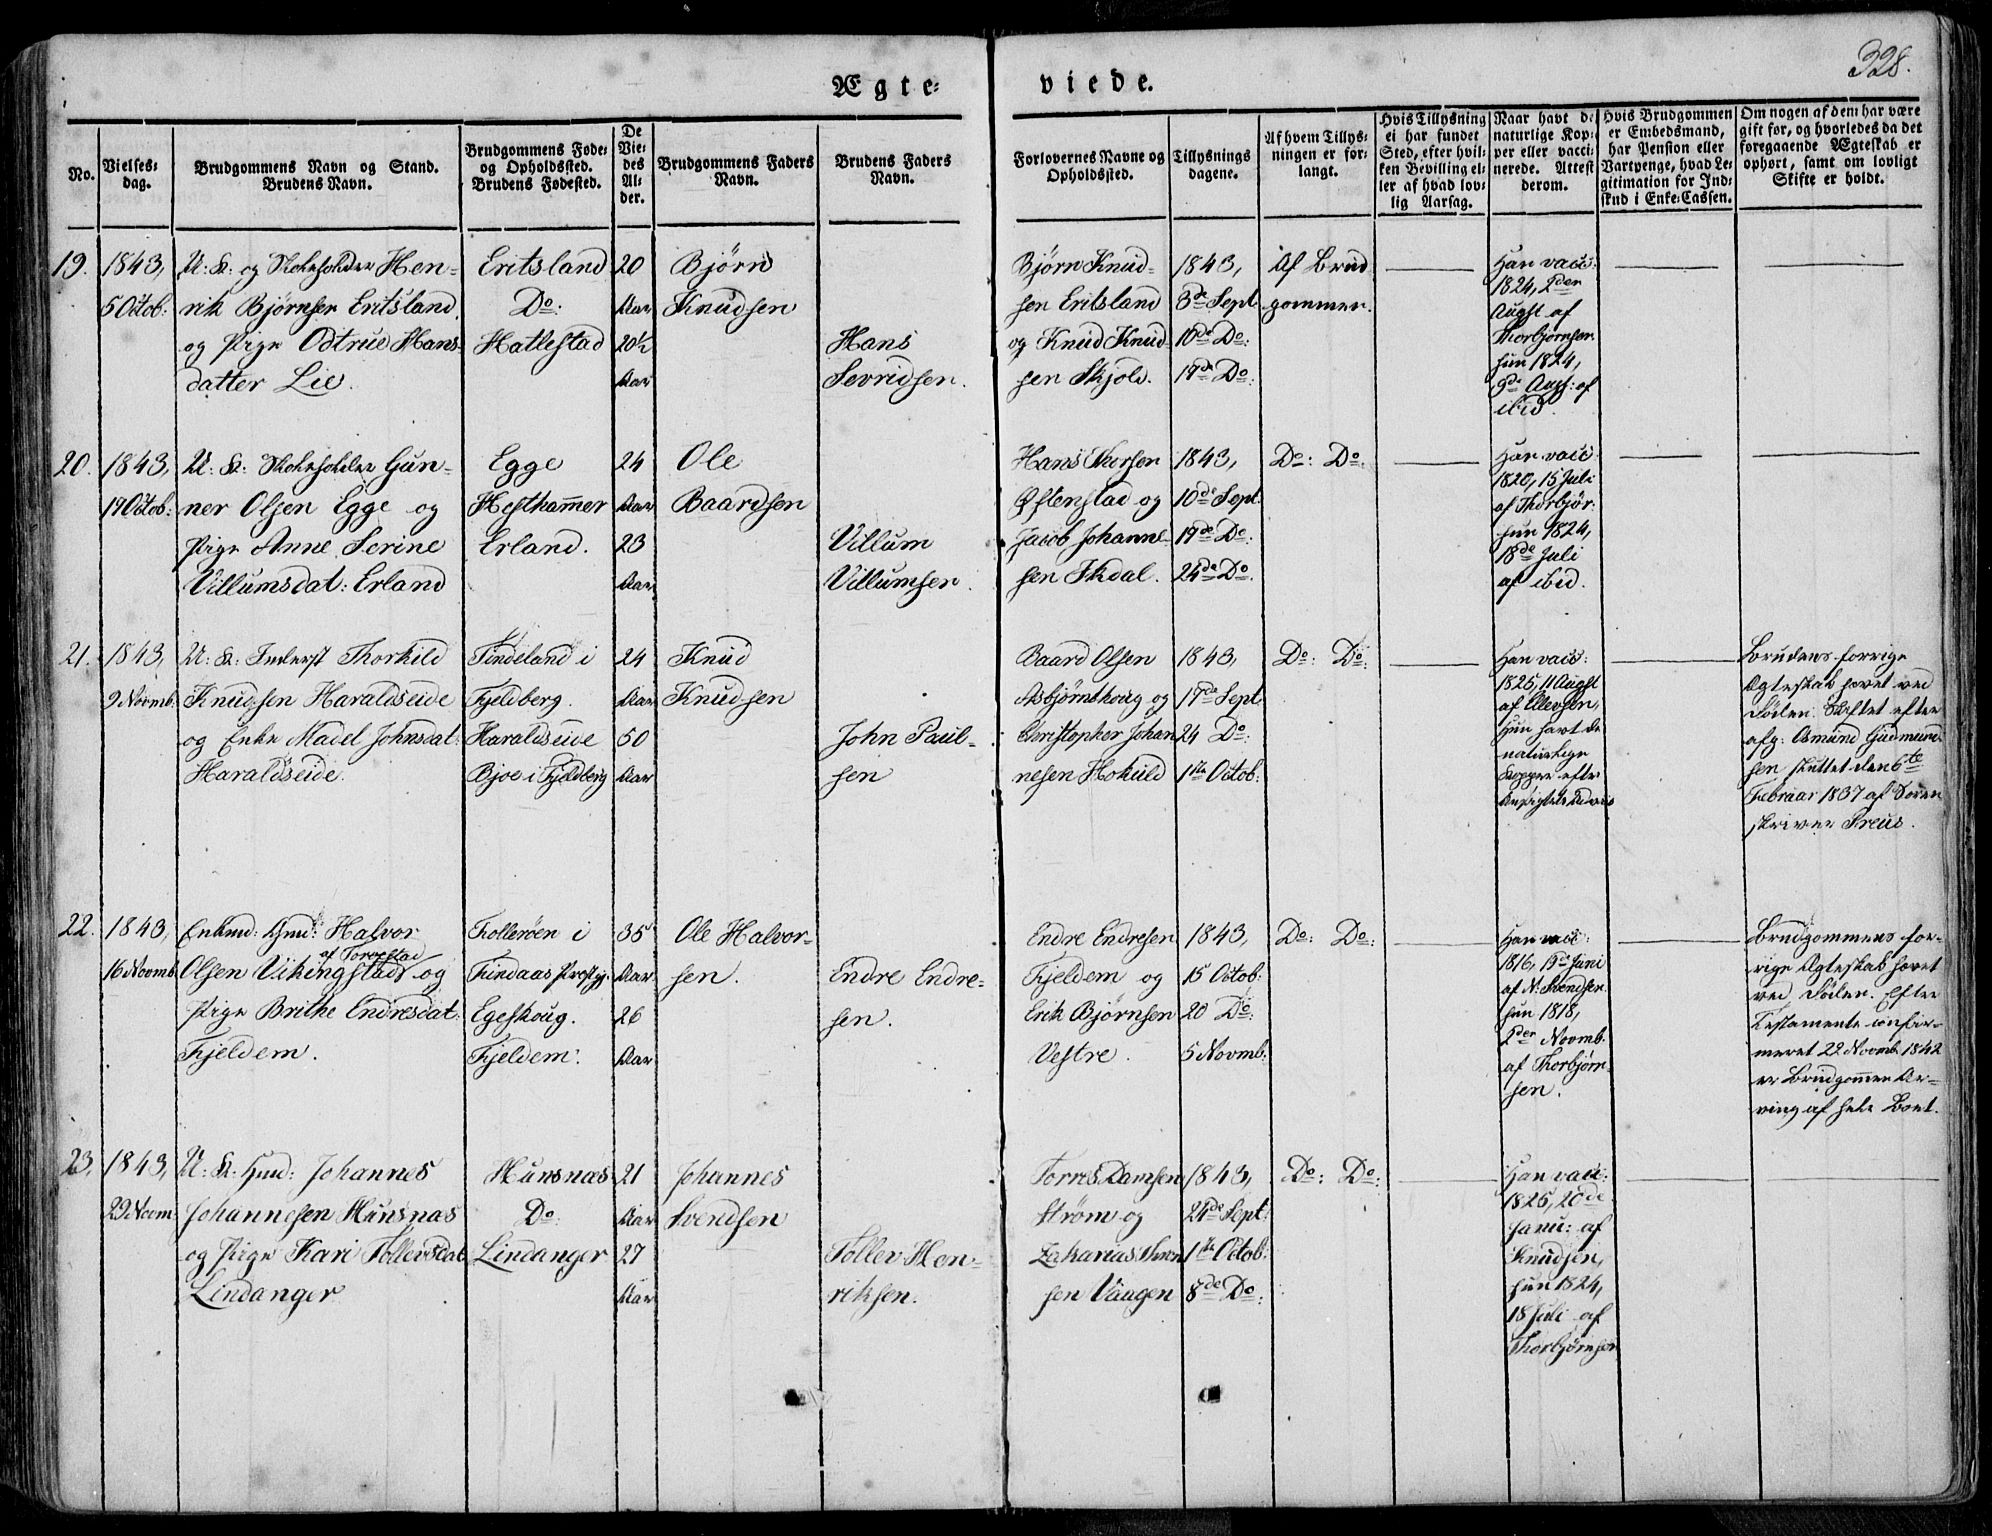 328.
Ægte- viede.
No.
Vielses-
dag.
Brudgommens Navn og Stand.
Brudens Navn.
Brudgommens Føde-
og Opholdssted.
Brudens Fødested.
De
Vie-
des
Al-
der.
Brudgommens Faders
Navn.
Brudens Faders
Navn.
Forlovernes Navne og
Opholdssted.
Tillysnings
dagene.
Af hvem Tillys-
ningen er for-
langt.
Hvis Tillysning
ei har fundet
Sted, efter hvil-
ken Bevilling el-
ler af hvad lov-
lig Aarsag.
Naar havt de
naturlige Kop-
per eller vacci-
nerede. Attest
derom.
Hvis Brudgommen
er Embedsmand,
har Pension eller
Vartpenge, hvad Le-
gitimation for Ind-
skud i Enke-Cassen.
Om nogen af dem har være
gift før, og hvorledes da det
foregaaende Ægteskab er
ophørt, samt om lovligt
Skifte er holdt.
19.
1843,
5 Octob:
U: K: og Hen-
rik Bjørnsen Eritsland
og Pige Odtrue Hans-
datter Lie.
Eritsland
Do:
Hatlestad
20
Aar
20½
Aar
Bjørn
Knudsen
Hans
Sevridsen.
Bjørn Knud-
sen Eritsland
og Knud Knud-
sen Skjold.
1843,
3de Sept
10de Do:
17de Do:
Af Brud
gommen.
Han vacc:
1824, 2den
Augst af
Thorbjørnsen
hun 1824,
9de Augst: af
ibid.
20.
1843,
19 Octob:
U: K: Gun-
ner Olsen Egge og
Pige Anne Serine
Villumsdat: Erland
Egge
Hesthammer
Erland.
24
Aar
23
Aar
Ole
Baardsen
Villum
Villumsen.
Hans Thorsen
Østenstad og
Jacob Johanne-
sen Ikdal.
1843,
10de Sept:
17de Do:
24de Do:
Do: Do:
Han vacc
1820, 15 Juli
af Thorbjør:
hun 1824,
18de Juli
af ibid.
21.
1843,
9 Novmb.
U: K: Inderst Thorkild
Knudsen Haraldseide
og Enke Madel Johnsdat:
Haraldseide.
Tindeland i
Fjeldberg.
Haraldseide
Bjoe i Fjeldberg
24
Aar
50
Aar
Knud
Knudsen
John Paul-
sen
Baard Olsen
Asbjørnthoug og
Christopher Johan
nesen Hokuld
1843,
17de Sept
24 Do:
1ste Octob:
Do: Do:
Han vacc:
1825, 11 Augst
af Ellevsen,
Hun havt de
naturlige
Kopper efter
Brudens forrige
Ægteskab hævet ved
Døden. Skiftet efter
afg: Osmund Gudmund
sen sluttet den 6te
Februar 1837 af Soren
skriver Preus.
22.
1843,
16 Novmb.
Enkmd: Gmd: Halvor
af Torvestad
Olsen Vikingstad og
Pige Brithe Endresdat:
Fjeldem.
Tollerøen i
Tindaas Prestgj:
Egeskoug.
Fjeldem.
35
Aar
26
Aar
Ole Halvor-
sen.
Endre Endre-
sen.
Endre Endresen
Fjeldem og
Erik Bjørnsen
Vestre.
1843,
15 Octob:
20 Do:
5 Novmb:
Do: Do:
Han vacc:
1816, 19de Juni
af N: Svendsen
hun 1818,
2den Novmb.
af Thorbjørn-
sen.
Brudgommens for-
rige Ægteskab hævet
ved Døden. Efter
Testamente confir-
meret 22 Novmb 1842
er Brudgommen Ar-
ving af hele Boet.
23.
1843,
29 Novm.
U: K: Gmd: Johannes
Johannesen Hunsnæs
og Pige Kari Tollevsdat
Lindanger
Hunsnæs
Do:
Lindanger
21
Aar
27
Aar
Johannes
Svendsen
Tollev Hen-
riksen.
Torres Damsen
Strøm og
Zakarias
sen Vaagen
1843,
24de Sept:
1ste Octob:
8de Do:
Do: Do:
Han vacc:
1825, 20de
Janu: af
Knudsen,
hun 1824,
18 Juli af
Thorbjørnsen